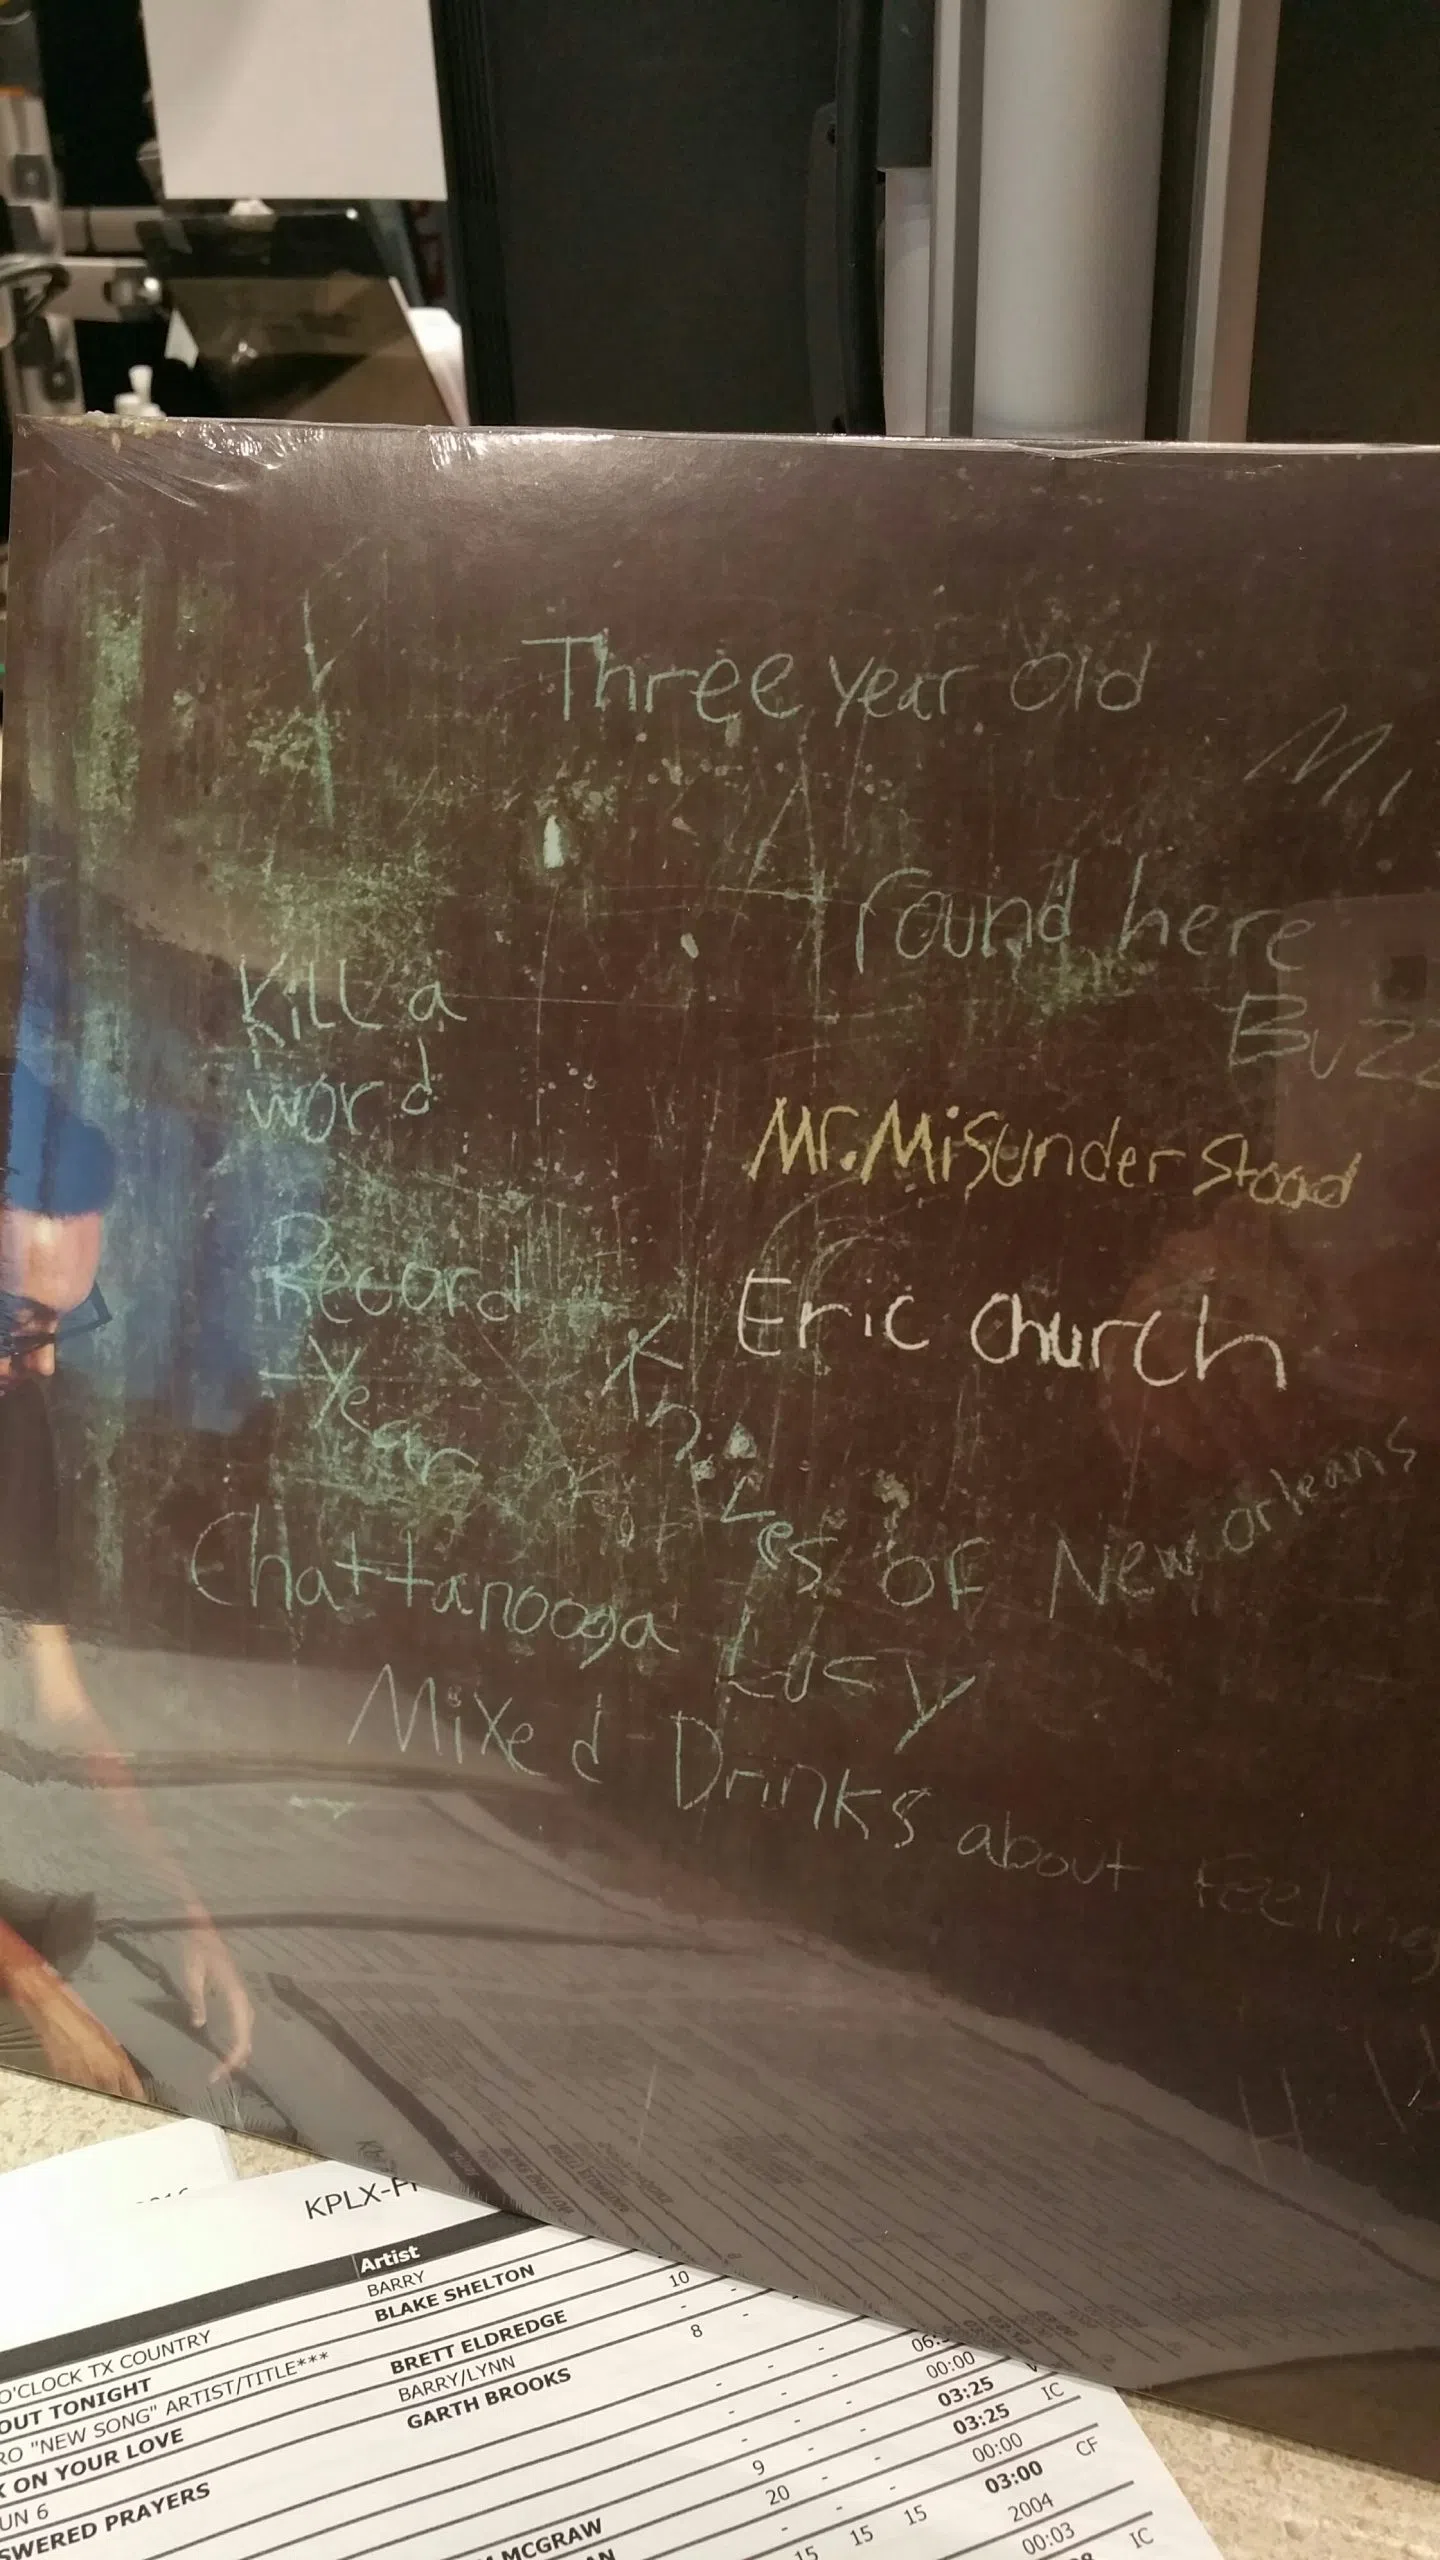 Three year Old
round here
Kill a
word
Buzz
Mr. Misunderstood
Record
Year
Eric Church
Knives of New Orleans
Chattanooga Lucy
Mixed Drinks about Feeling
KPLX-F
Artist
BARRY
O'CLOCK TX COUNTRY BLAKE SHELTON 10
OUT TONIGHT
RO "NEW SONG" ARTIST/TITLE*** BRETT ELDREDGE 8
K ON YOUR LOVE BARRY/LYNN
UN 6 GARTH BROOKS
SWERED PRAYERS
00:00
03:25
03:25 IC
9 00:00
20 03:00 CF
MCGRAW 15 15 15 2004
00:03 IC